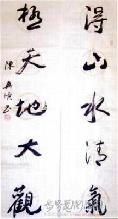 得山水清氣
極天地大觀
陳